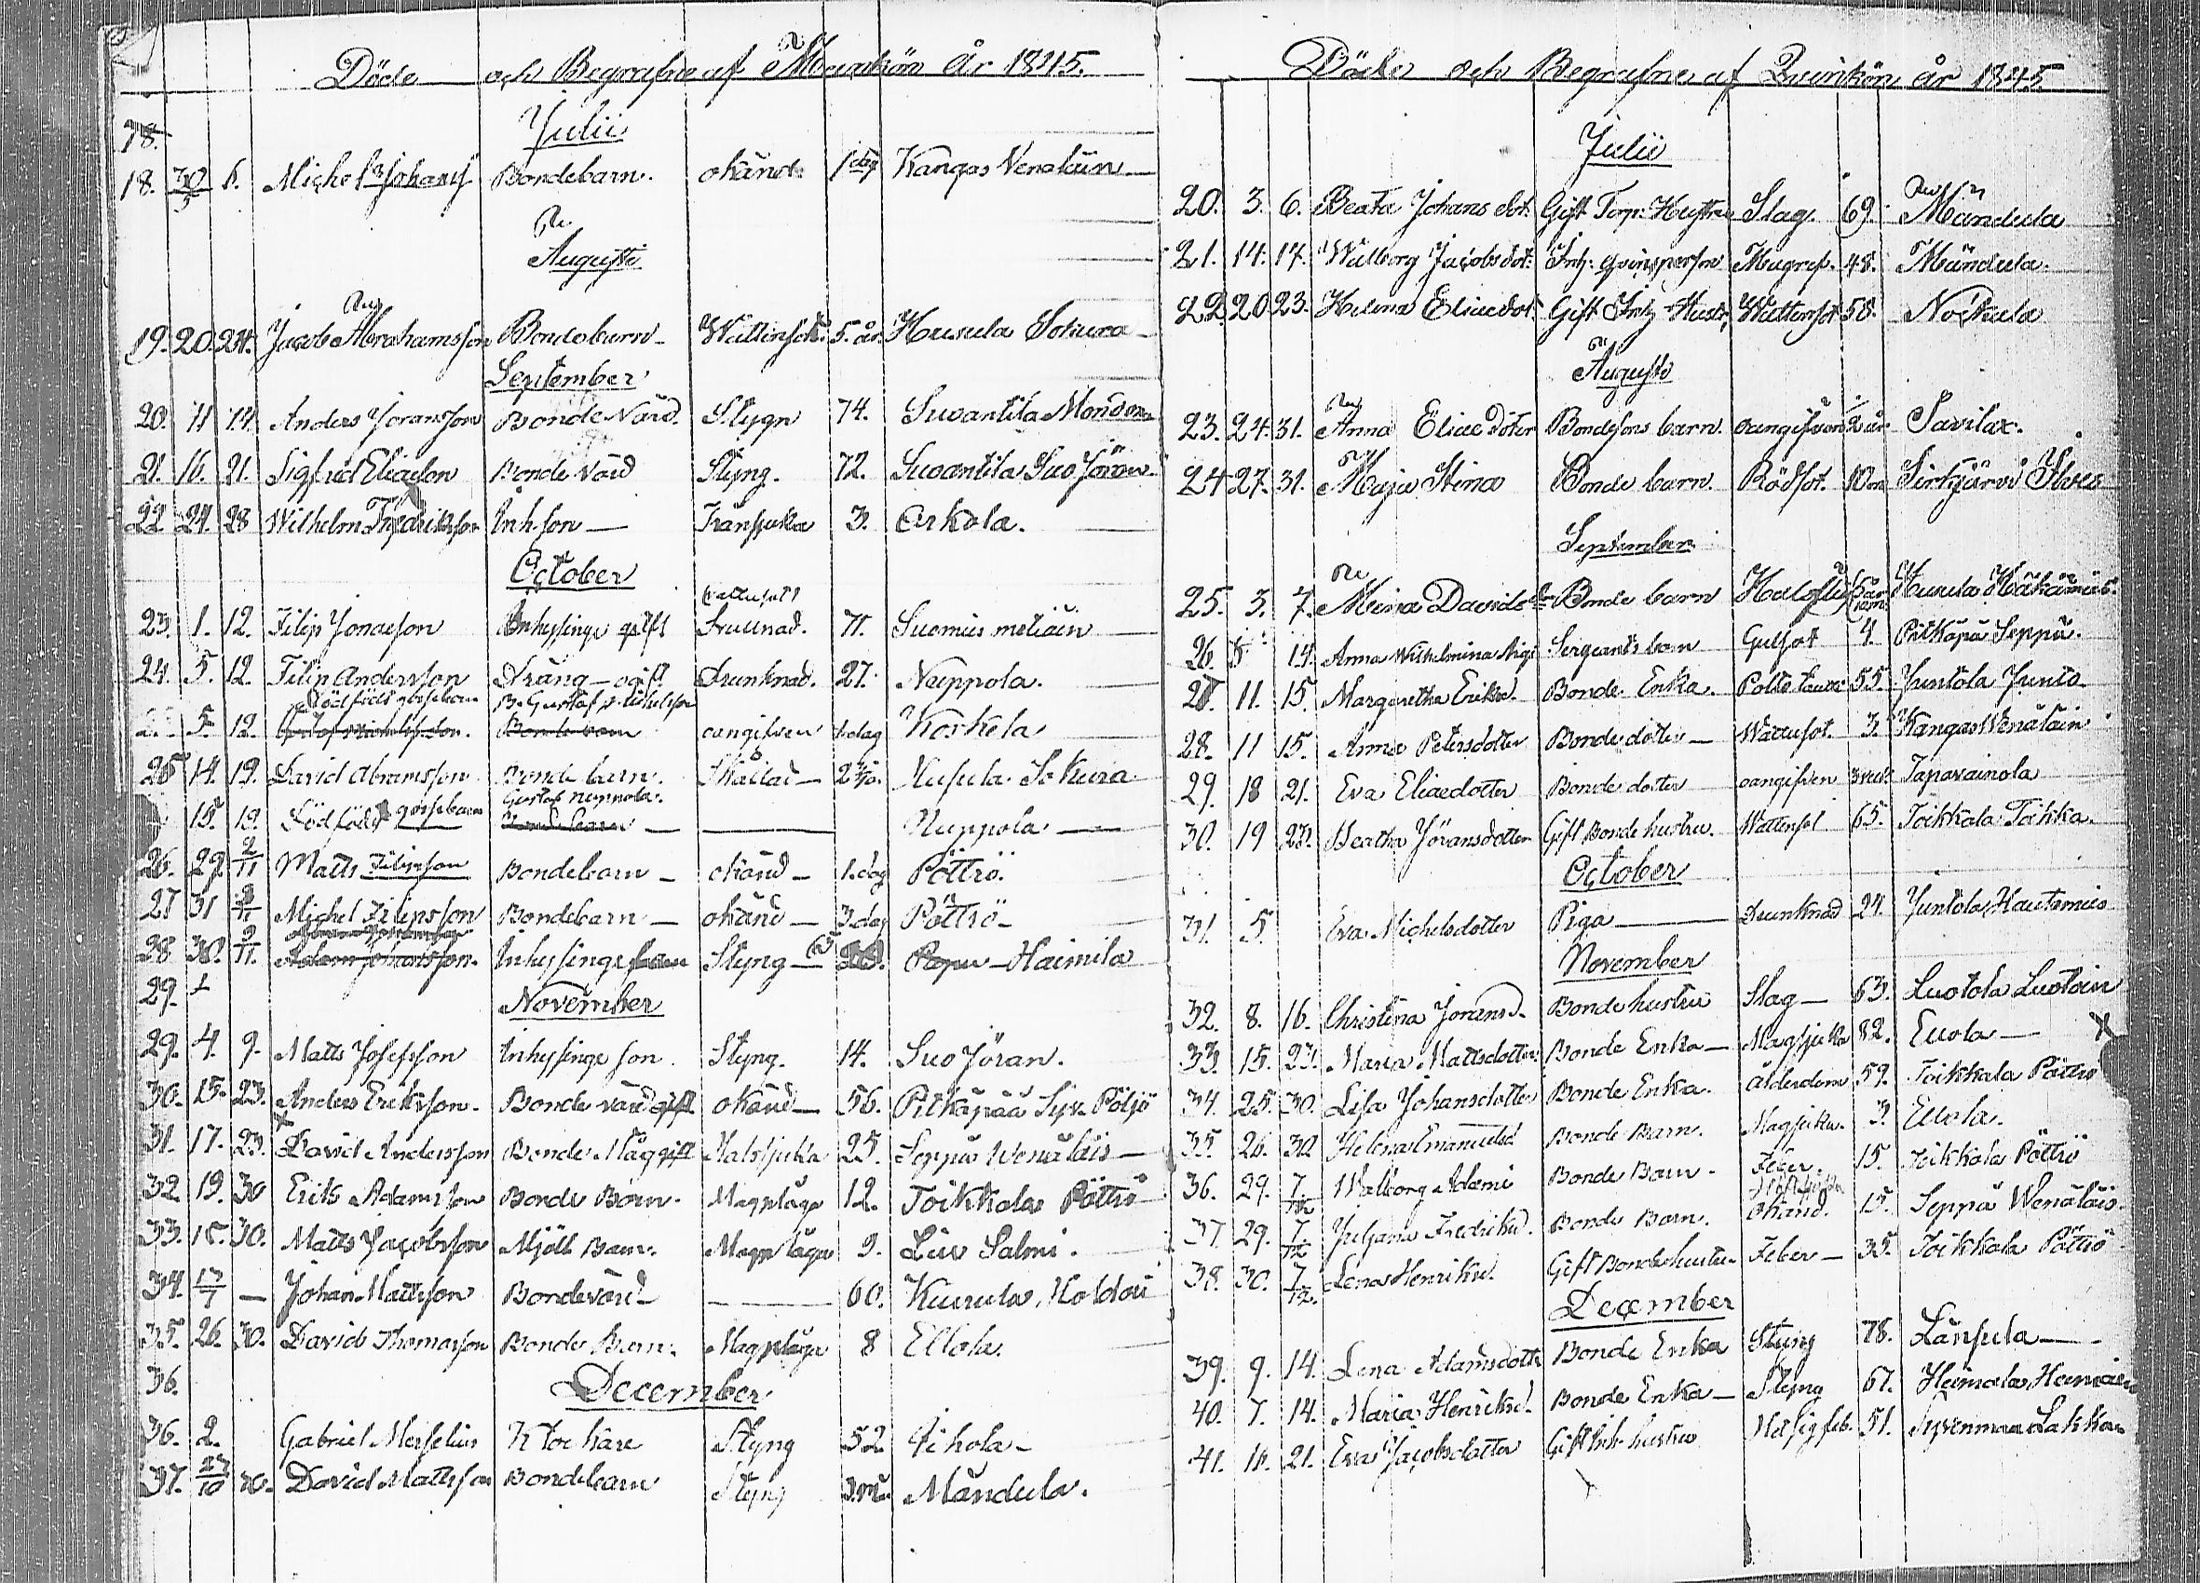 Döde och Begrafne af Mankön År 1845.
18.
Julii
18. 30/5 6. Michel Johansf Bondebarn. okänd 1 dag Kangas Venäläin
Augusti
19. 20. 24. Jacob Abrahamsson Bondebarn Wattensot. 5. år Husula Sokura
September
20. 11 14. Anders Joransson Bonde Värd. Stygn 74. Suoantila Mondon
21. 16. 21. Sigfrid Eliasson Bonde Värd Styng. 72. Suoantila Suo Jöran.
22 24. 28 Wilhelm Fredriksson Inh. son Transjuka 3. Arkola.
October
23. 1. 12. Filip Jonasson Inhysinge gift Drunnad. 71. Suomius metiäin
24. 5. 12. Filip Andersson Dräng ogift Drunknad. 27. Neppola.
Dödfödt gossebarn B. Gustaf Michelsson
5. 12. Bondebarn oangifven 1. dag Koskela
25 14. 19. David Abramsson Bondebarn. Husula Sokura
Gustaf Neppola.
15. 19. Dödfödt gossebarn Neppola
26. 29. 2/11 Matts Filipsson Bondebarn okänd 1. dag Pöttrö.
27 31 2/11 Michel Filipsson Bondebarn okänd 3. dag Pöttrö
28 30. 2/11. Adam Johansson. Inhysinge Styng Haimila
29.
November
29. 4. 9. Matts Josefsson Inhysinge son Styng. 14. Suo Jöran.
30. 15. 23. Anders Eriksson. Bonde värd gift okänd 56. Pitkäpää Syv. Pöljö
31. 17. 23. David Andersson Bonde Måg gift Halssjuka 25. Seppä Wenäläis
32 19. 30 Erik Adamsson Bonde Barn. Magplåga 12. Toikkala Pöttrö
33. 18. 30. Matts Jacobsson Mjöll Barn. Magplåga 9. Liu Salmi.
34. 17/7 Johan Mattsson Bondevärd 60. Kuurula, Koldoi
35. 26. 30. David Thomasson Bonde Barn. Magplåga 8 Ellola.
36.
December
36. 2. Gabriel Merselius Klockare Styng 52 Pihola
37. 27/10 David Mattsson Bondebarn Styng Mändula.
Döde och Begrafne af Qvinkön år 1845
Julii
20. 3. 6. Beata Johansdot. Gift Torp. Hustru Slag. 69. Mändula
21. 14. 17. Walborg Jacobsdot. Inh. qvinsperson Magref. 48. Mändula.
22. 20. 23. Helena Eliaedot. Gift Inh. Hustr. Wattensot 58. Nockula
Augusti
23. 24. 31. Anna Eliaedoter Bondesons barn. oangifven 2 år Savilax.
24 27. 31. Maja Stina Bonde barn. Rödsot. 10 m Sirkjärvi Ilves
September
25. 3. 7. Maria Davidsd. Bonde barn Husula Häkämies
26. 5 14. Anna Wilhelmina Sergeants barn Gulsot 4. Pitkäpä Seppä.
27. 11. 15. Margaretha Eriksd. Bonde Enka. 55. Juntola Junto
28. 11 15. Anna Petersdotter Bonde doter Wattusot. 3. Kangas Wenäläin
29. 18 21. Eva Eliaedotter Bonde doter oangifven 3 veck. Tapavainola
30. 19 23. Beatha Jöransdotter Gift Bonde hustru. Wattensot 65. Toikkala Toikka.
October
31. 5. Eva Michelsdotter Piga Drunknad 24. Juntola, Hautamies
November
32. 8. 16. Christina Joransd. Bonde hustru Slag 63. Luotola Luotoin
33. 15. 23. Maria Mattsdotter Bonde Enka Magsjuka 82. Ellola
34. 25. 30. Lisa Johansdotter Bonde Enka. ålderdom 59. Toikkala Pöttrö
35. 26. 30 Helena Emanuelsd Bonde Barn. Magsjuka. 3. Ellola.
36. 29. 7/12 Walborg Adami Bonde Barn. Feber. 15. Toikkala Pöttrö
37. 29. 7/12 Juljana Fredriksd. Bonde Barn. okänd. 15. Seppä Wenäläis.
38. 30. 7/12. Lena Henriksd. Gift Bondehustru Feber 35. Toikkala Pöttrö
December
39. 9. 14. Lena Adamsdottr Bonde Enka Styng 78. Länsula
40. 7. 14. Maria Henriksd. Bonde Enka Styng 67. Heimala Hemäin
41. 16. 21. Eva Jacobsdotter Gift Inh. hustru Hetsig feb. 51. Syvenmaa Lakka